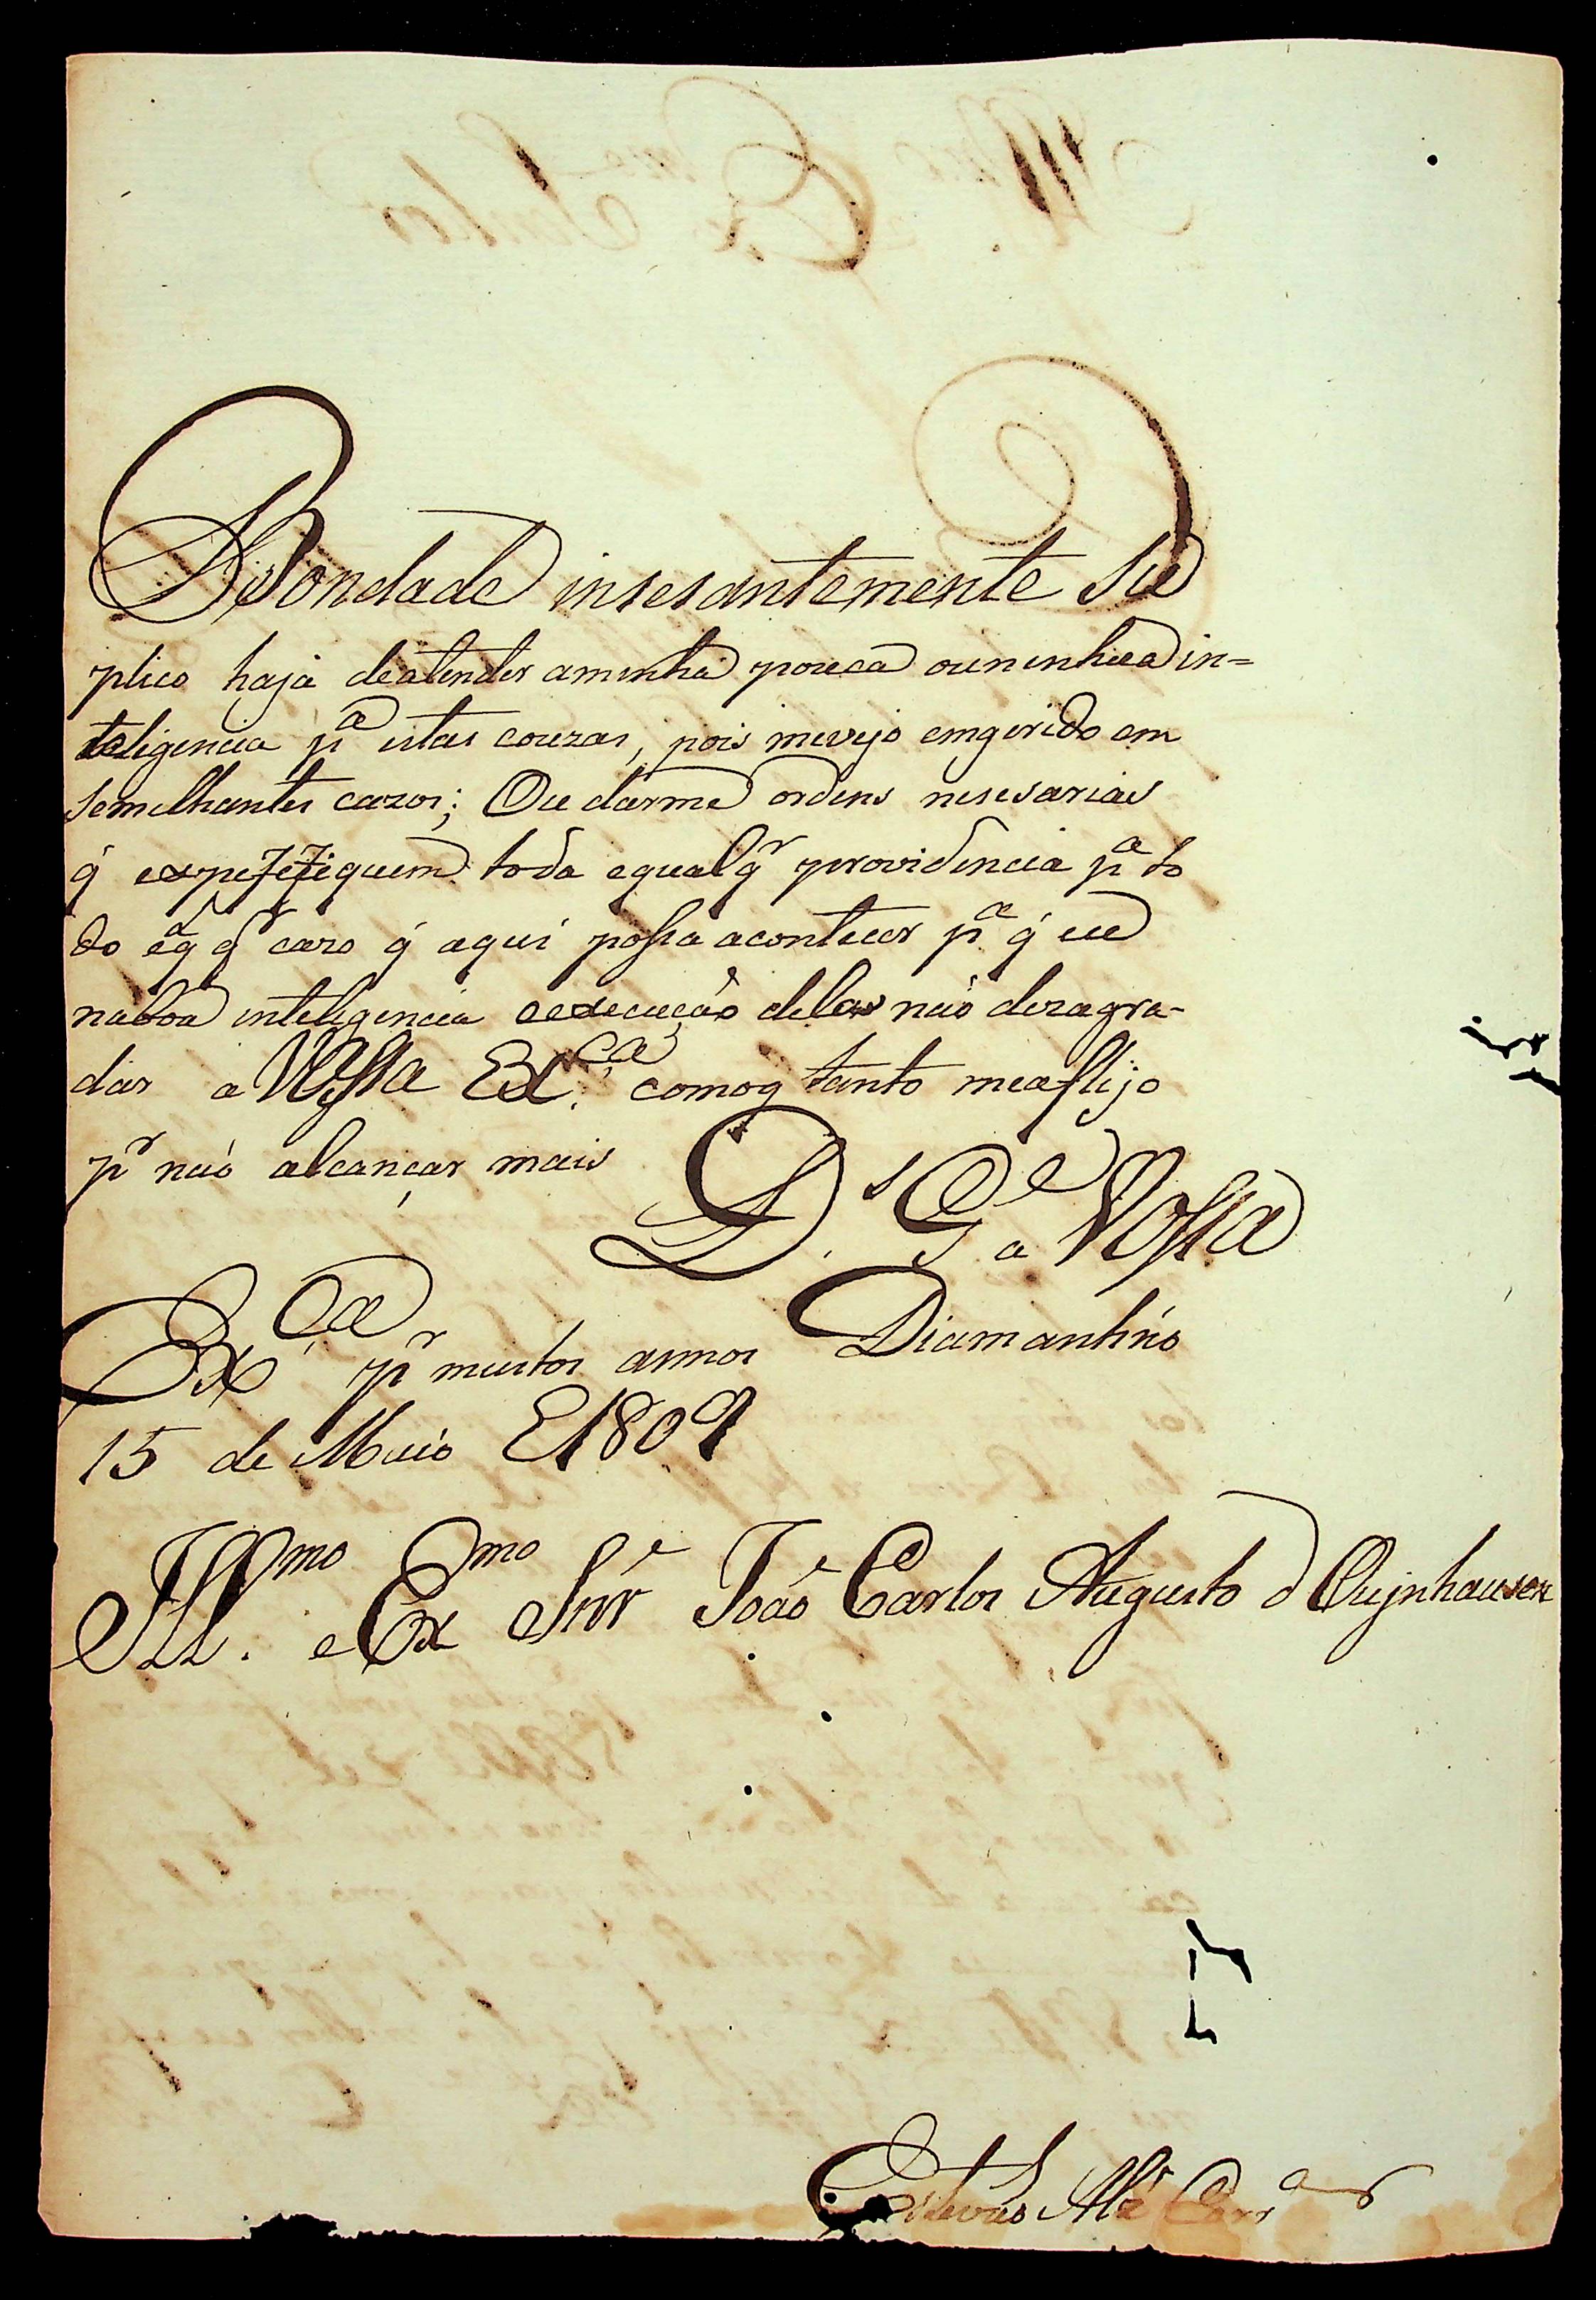 Bondade insesantemente Su
plico haja deatender aminha pouca ouninhua in=
teligencia pª estas couzas, pois mevejo emgerido em
semelhantes cazos; Ou darme ordens nesesarias
q̃ expesefiquem toda equalqʳ providencia pª to
do eqªqʳ cazo q̃ aqui possa acontecer pª q̃ eu
naboa inteligencia eexecução delas não dezagra-
dar a Vossa Exᶜª. comoq tanto meaflijo
pʳ não alcançar mais
D.ˢ G.ᵉ a Vossa
Exᶜª pʳ muitos annos Diamantino
15 de Maio E1809
Illᵐᵒ. e Exᵐᵒ Snr João Carlos Augusto d Oujnhausen
Estevão Alź Corrª